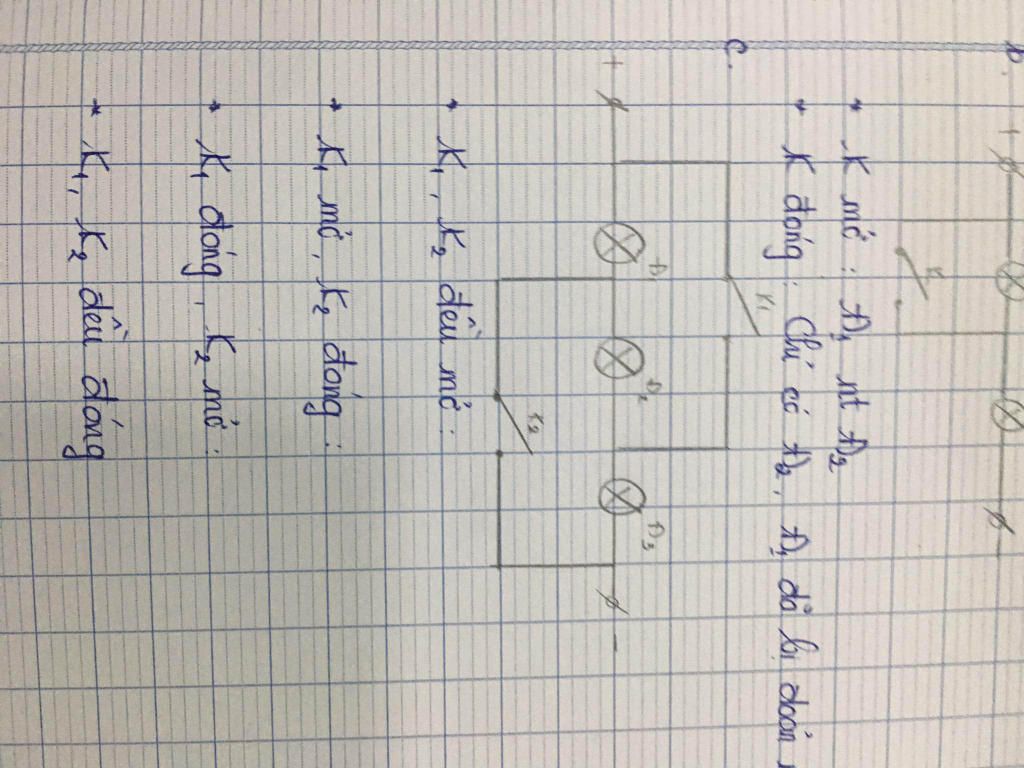 b.
+ -
K
* K mở : Đ1 nt Đ2
* K đóng : Chỉ có Đ2, Đ1 đã bị đoản
c.
K1
+ Đ1 Đ2 Đ3 -
K2
* K1, K2 đều mở :
* K1 mở, K2 đóng :
* K1 đóng, K2 mở :
* K1, K2 đều đóng